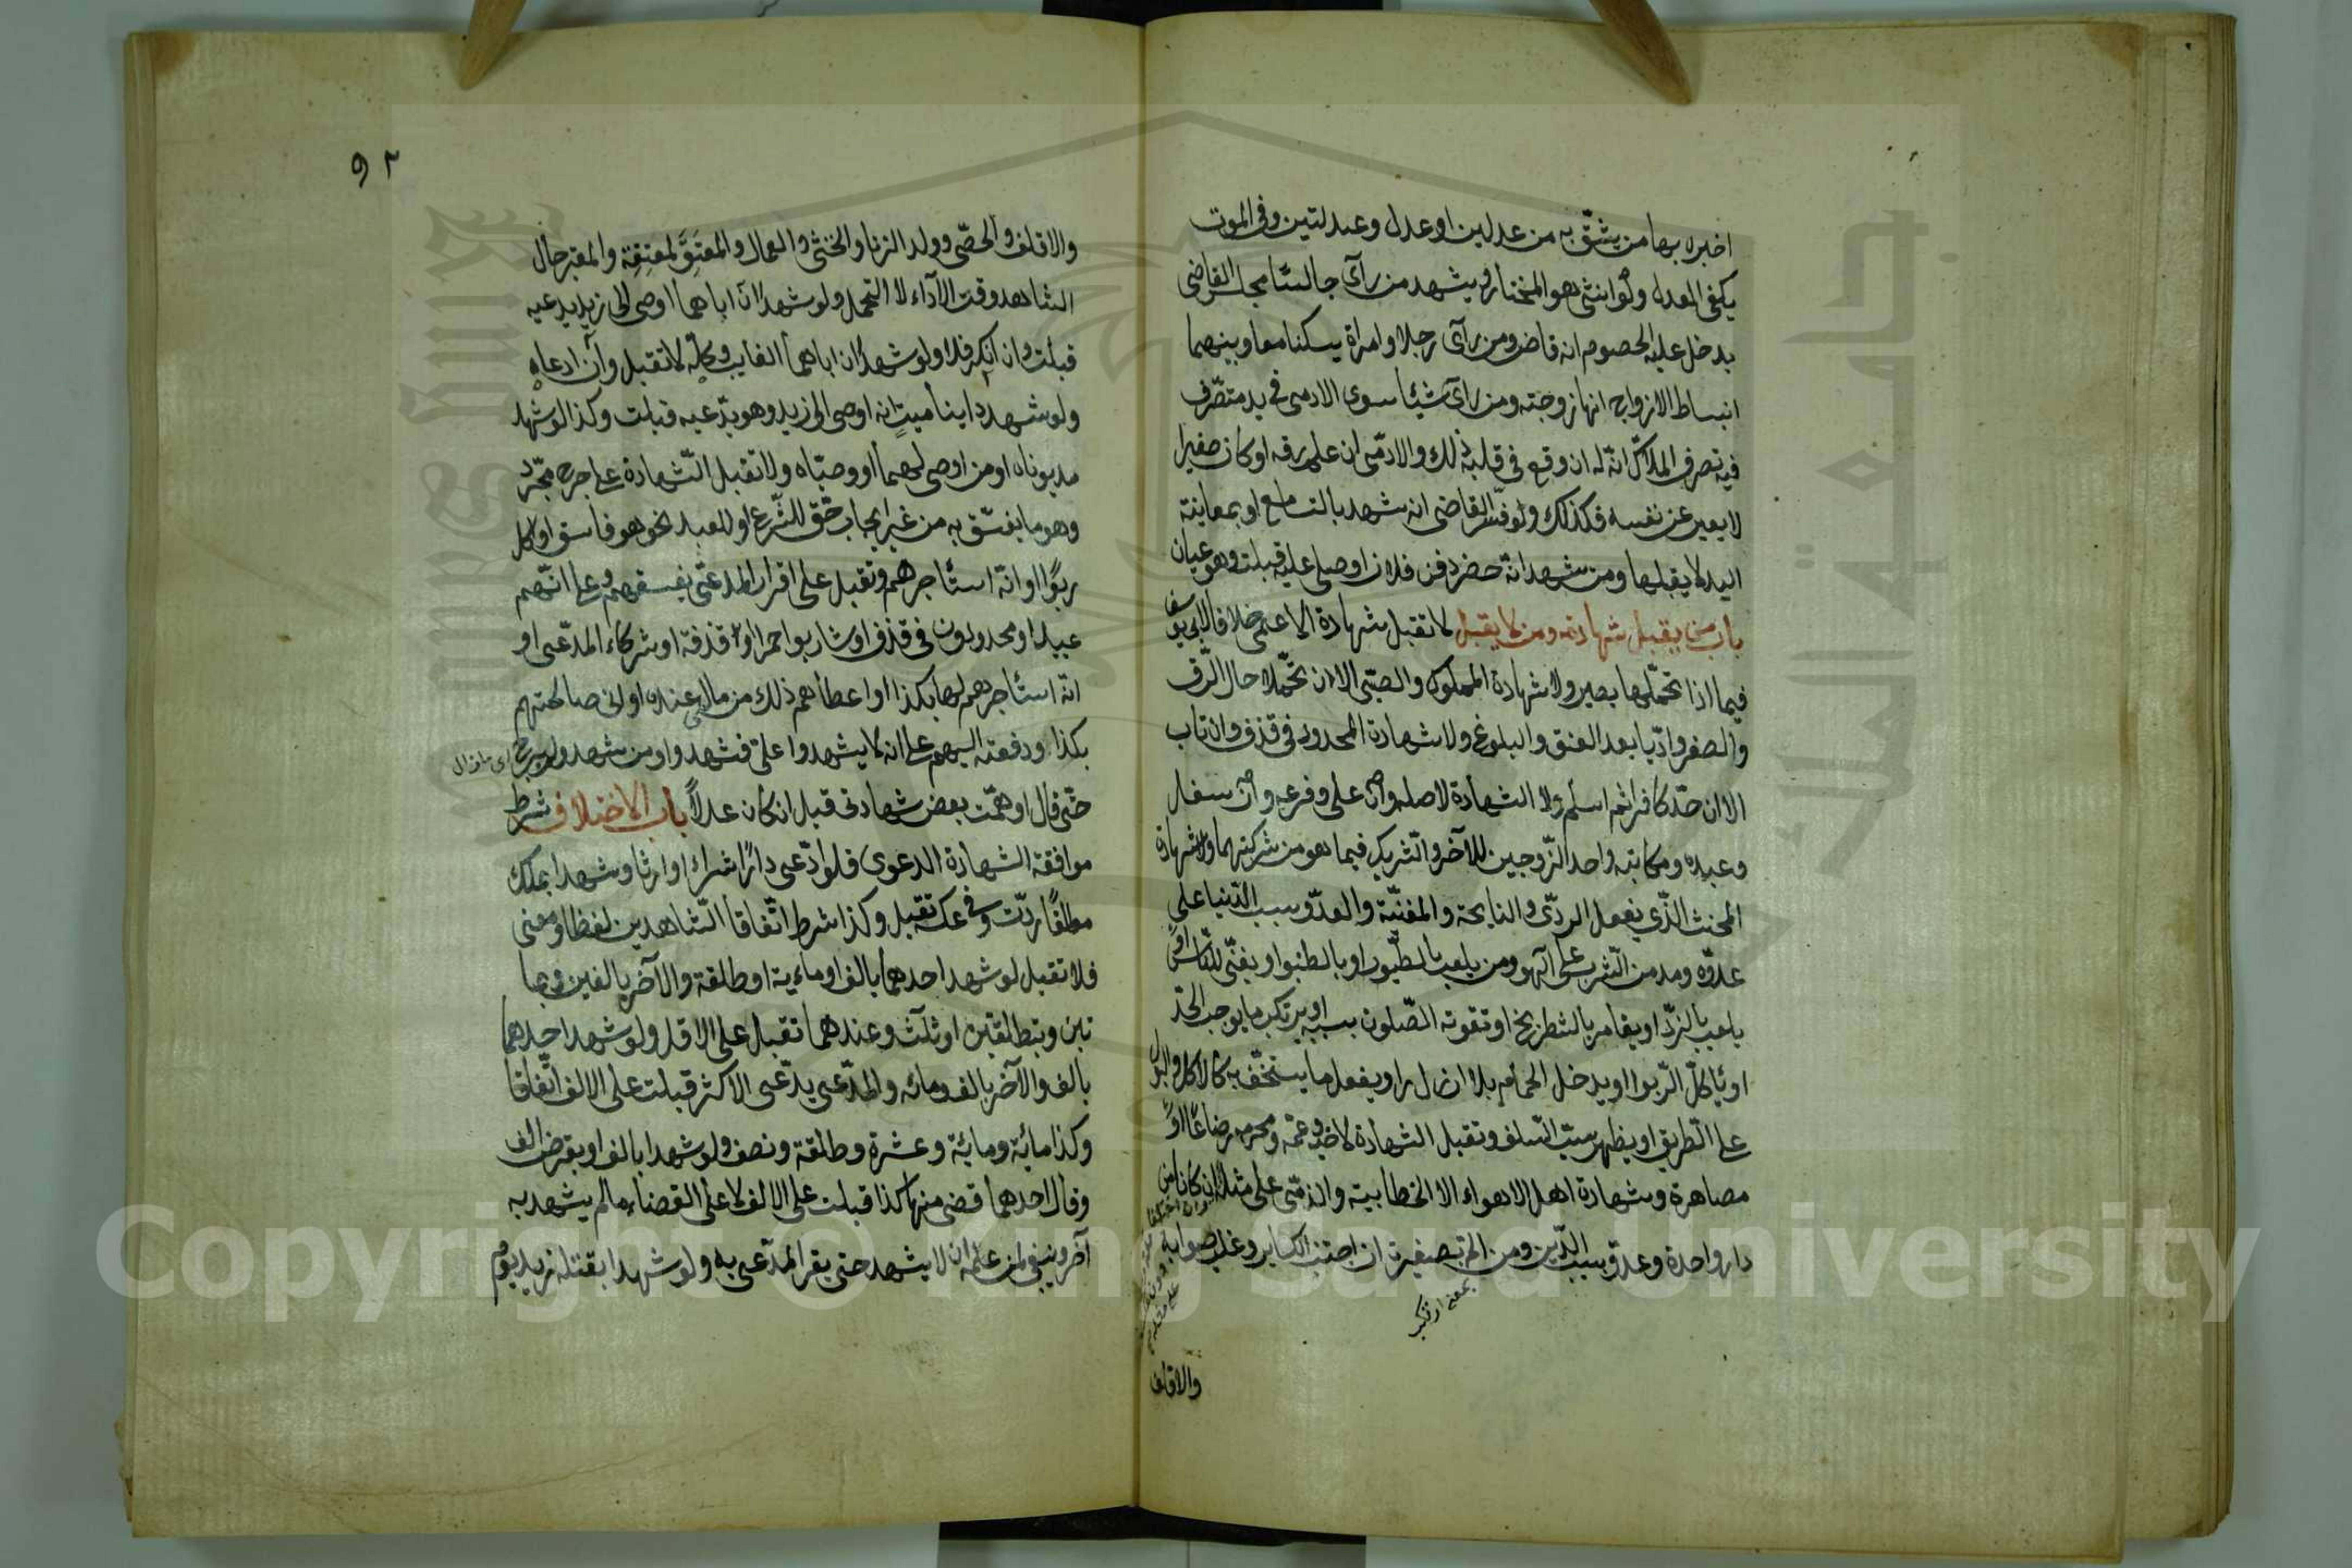 اخبره بها من يثق به من عدلين او عدل وعدلتين وفي الموت
يكفي العدل ولو انثى هو المختار ويشهد من رآى جالسا مجلس القاضي
يدخل عليه الخصوم انه قاض ومن رآى رجلا وامراة يسكنا معا وبينهما
انبساط الازواج انها زوجته ومن رآى شيئا سوى الادمى في يد متصرف
فيه تصرف الملاك انه له ان وقع في قلبه ذلك والادمى ان علم رقه او كان صغيرا
لا يعبر عن نفسه فكذلك ولو فسر القاضي انه شهد بالتسامع او بمعاينة
اليد لا يقبلها ومن شهد انه حضر دفن فلان او صلى عليه قبلت وهو عيان
باب من يقبل شهادته ومن لا يقبل لا تقبل شهادة الاعمى خلافا لابي يوسف
فيما اذا تحملها بصير ولا شهادة المملوك والصبي الا ان تحملا حال الرق
والصغر واديا بعد العتق والبلوغ ولا شهادة المحدود في قذف وان تاب
الا ان حد كافرا ثم اسلم ولا الشهادة لاصله وان على وفرعه وان سفل
وعبده ومكاتبه واحد الزوجين للآخر والشريك فيما هو من شركتهما ولا شهادة
المخنث الذي يفعل الردى والنايحة والمغنية والعدو بسبب الدنيا على
عدوه ومدمن الشرب على اللهو ومن يلعب بالطيور او بالطنبو او يغني للناس او
يلعب بالنرد او يقامر بالشطرنج او تفوته الصلوة بسببه او يرتكب ما يوجب الحد
او يأكل الربوا او يدخل الحمام بلا ازار او يفعل ما يستخف به كالاكل والبول
على الطريق او يظهر سب السلف وتقبل الشهادة لاخيه وعمه ومحرمه رضاعا او
مصاهرة وشهادة اهل الاهواء الا الخطابية والذمى على مثله ان كانا من
دار واحدة وعدو بسبب الدين ومن الم بصغيرة ان اجتنب الكباير وغلب صوابه
بمعنى ارتكب
والاقلف
٩٢
والاقلف والخصى وولد الزنا والخنثى والعمال والمعتق لمعتقه والمعتبر حال
الشاهد وقت الآداء لا التحمل ولو شهدا ان اباهما اوصى الى زيد يدعيه
قبلت وان انكر فلا ولو شهدا ان اباهما الغايب وكله لا تقبل وان ادعاه
ولو شهد داينا ميت انه اوصى الى زيد وهو يدعيه قبلت وكذا لو شهد
مديوناه او من اوصى لهما او وصياه ولا تقبل الشهادة على جرح مجرد
وهو ما يفسق به من غير ايجاب حق للشرع او للعبد نحو هو فاسق او اكل
ربوا او انه استأجرهم وتقبل على اقرار المدعى بفسقهم وعلى انهم
عبيد او محدودون في قذف او شاربوا خمر او قذفة او شركاء المدعى او
انه استأجرهم لها بكذا او اعطاهم ذلك من مالي عنده او انى صالحتهم
بكذا ودفعته اليهم على ان لا يشهدوا على فشهدوا ومن شهد ولم يبرح
حتى قال اوهمت بعض شهادتى قبل ان كان عدلا باب الاختلاف شرط
موافقة الشهادة الدعوى فلو ادعى دارا شراء او ارثا وشهدا بملك
مطلقا ردت وفي عكسه تقبل وكذا شرط اتفاقا الشاهدين لفظا ومعنى
فلا تقبل لو شهد احدهما بالف او مائة او طلقة والآخر بالفين وبما
تين وبتطلقتين او ثلث وعندهما تقبل على الاقل ولو شهد احدهما
بالف والآخر بالف ومائه والمدعى يدعى الاكثر قبلت على الالف اتفاقا
وكذا مائة ومائة وعشرة وطلقة ونصف ولو شهدا بالف او بقرض الف
وقال احدهما قضى منها كذا قبلت على الالف لا على القضاء ما لم يشهد به
آخر وينبغي لمن علمه ان لا يشهد حتى يقر المدعى به ولو شهدا بقتله زيد يوم
Copyright © King Saud University